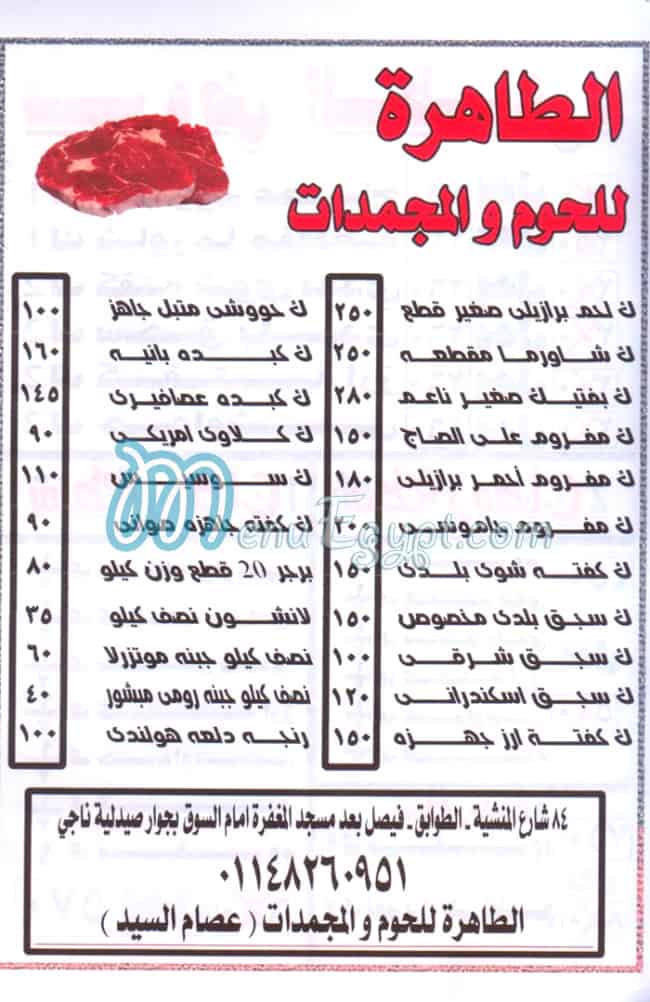 الطاهرة
للحوم و المجمدات
ك لحم برازيلى صغير قطع ٢٥٠
ك شاورما مقطعه ٢٥٠
ك بفتيك صغير ناعم ٢٨٠
ك مفروم على الصاج ١٥٠
ك مفروم أحمر برازيلى ١٨٠
ك مفروم جاموسى ٢٠٠
ك كفته شوى بلدى ١٥٠
ك سجق بلدى مخصوص ١٥٠
ك سجق شرقى ١٠٠
ك سجق اسكندرانى ١٢٠
ك كفتة ارز جهزه ١٥٠
ك حووشى متبل جاهز ١٠٠
ك كبده بانيه ١٦٠
ك كبده عصافيرى ١٤٥
ك كلاوى امريكى ٩٠
ك سوسيس ١١٠
ك كفته جاهزه صوانى ٩٠
برجر 20 قطع وزن كيلو ٨٠
لانشون نصف كيلو ٣٥
نصف كيلو جبنه موتزرلا ٦٠
نصف كيلو جبنه رومى مبشور ٤٠
رنجه دلعه هولندى ١٠٠
MenuEgypt.com
٨٤ شارع المنشية - الطوابق - فيصل بعد مسجد المغفرة امام السوق بجوار صيدلية ناجي
٠١١٤٨٢٦٠٩٥١
الطاهرة للحوم و المجمدات ( عصام السيد )